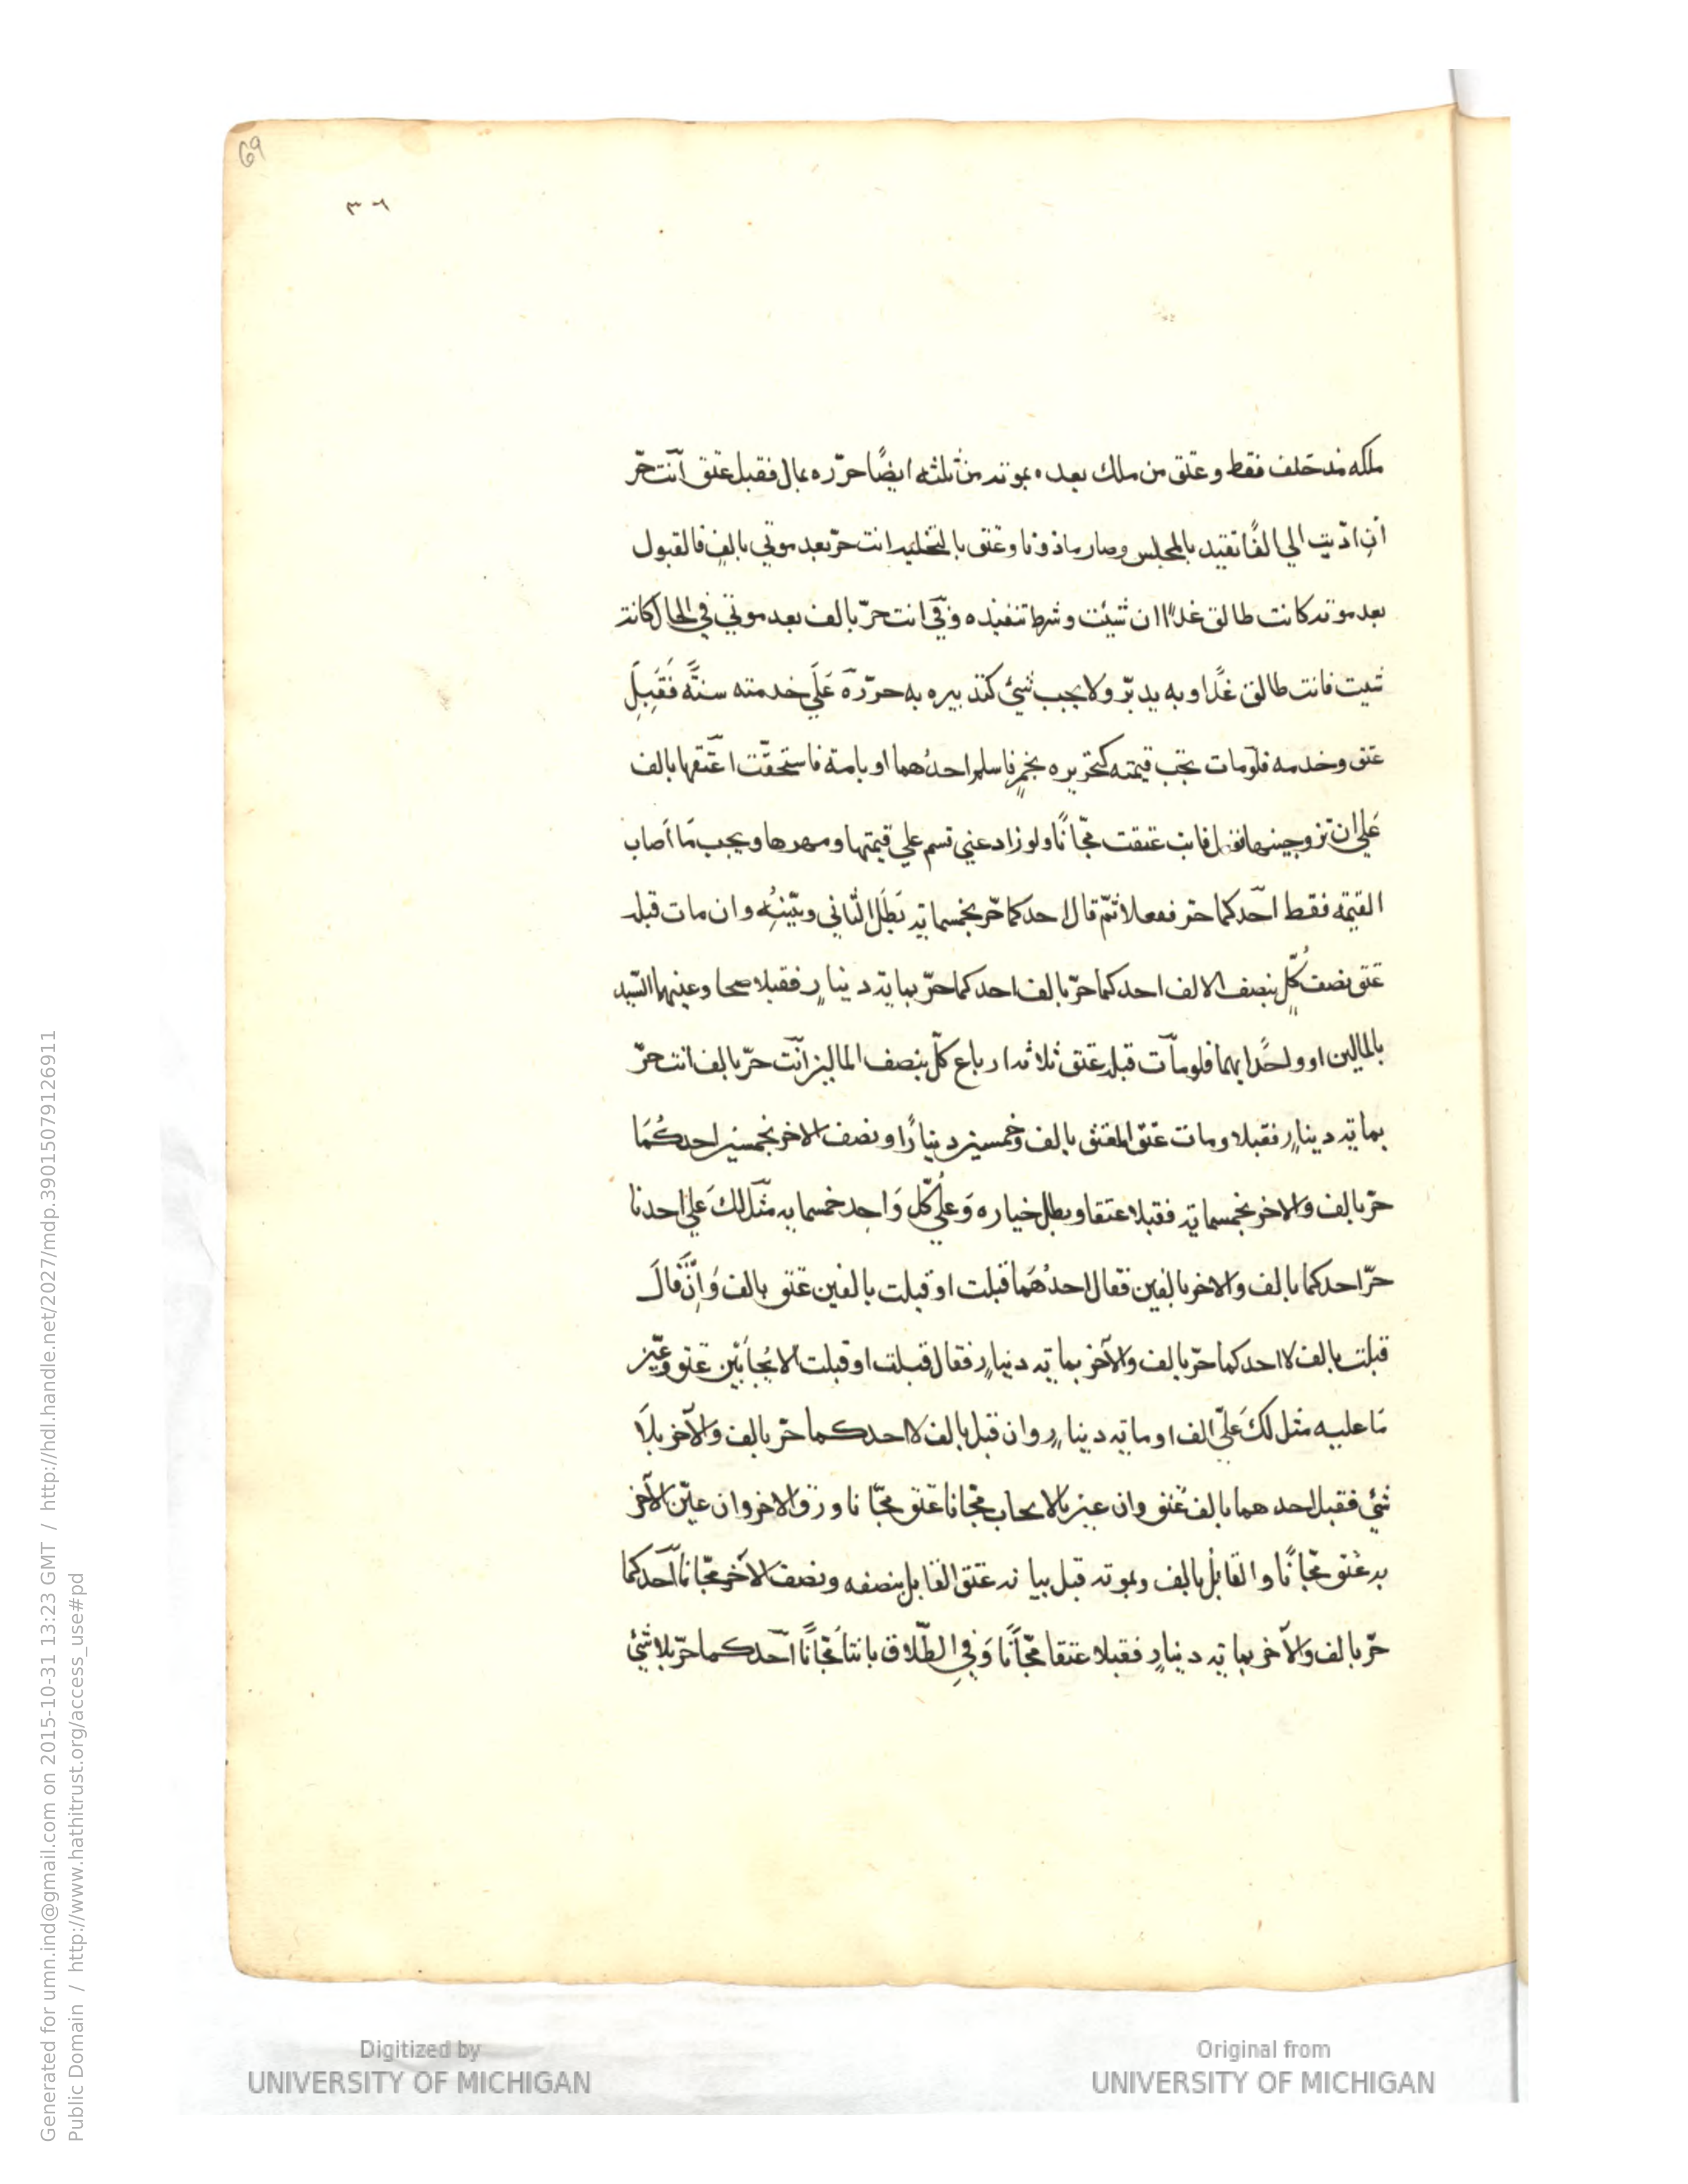 69
٣٦
ملكه مذ حلف فقط وعتق من ملك بعده بموته من ثلثه ايضًا حرّره بمال فقبل عتق انت حرّ
ان ادّيت الي الفًا تقيد بالمجلس وصار ماذونا وعتق بالتخلية انت حرّ بعد موتي بالف فالقبول
بعد موته كانت طالق غدًا ان شيئت وشرط تنفيذه وفي انت حرّ بالف بعد موتي في الحال كانت
شيت فانت طالق غدًا وبه يدبّر ولا يجب شئ كتدبيره به حرّره عَلَي خدمته سنةً فَقَبِلَ
عتق وخدمه فلومات تجب قيمته كتحريره بخمر فاسلم احدُهما او بامة فاستحقّت اعتقها بالف
عَلي ان تزوجينها ففعل فابت عتقت مجّانًا ولو زاد عني قسم علي قيمتها ومهرها ويجب مَا اصاب
القيمة فقط احدكما حر ففعلا ثمّ قال احدكما حّر بخمسماية بَطَل الثاني ويبّنهُ وان مات قبله
عتق نصف كُلٍّ بنصف الالف احدكما حرّ بالف احدكما حرّ بماية دينارٍ فقبلا صحا وعينهما السّيد
بالمالين او واحدًا بهما فلو مات قبله عتق ثلاثه ارباع كلّ بنصف المالين انّت حرّ بالف انت حرّ
بماية دينارٍ فقبلا ومات عتق المعتق بالف وخمسين دينارًا ونصف الاخر بخمسين احدكُمَا
حرّ بالف والاخر بخمسماية فقبلا عتقا وبطل خياره وَعَلي كلّ وَاحِد خمسمايه مثل لكَ عَلي احدنا
حرّ احدكما بالف والاخر بالفين فقال احدُهمَا قبلت او قبلت بالفين عتق بالف وَانْ قالَ
قبلت بالف لا احدكما حرّ بالف والآخر بماية دينارٍ فقال قبلت او قبلت الايجابَين عتق وعيّن
مَا عليه مثل لكَ عَليّ الف او ماية دينارٍ وان قبل بالف لا احدكما حرّ بالف والآخر بلَا
شئ فقبل احدهما بالف عتق وان عين بالايجاب مجّانا عتق مجّانا ورق الاخر وان عيّن الآخر
به عُتق مجّانًا والقابُل بالف وبموته قبل بيانه عتق القابل بنصفه ونصف الآخر مجّانا احدكما
حرّ بالف والآخر بماية دينارٍ فقبلا عتقا مجّانًا وَفي الطّلاق بانتا مجّانًا احدكما حرّ بلا شئ
Digitized by
UNIVERSITY OF MICHIGAN
Original from
UNIVERSITY OF MICHIGAN
Generated for umn.ind@gmail.com on 2015-10-31 13:23 GMT / http://hdl.handle.net/2027/mdp.39015079126911
Public Domain / http://www.hathitrust.org/access_use#pd